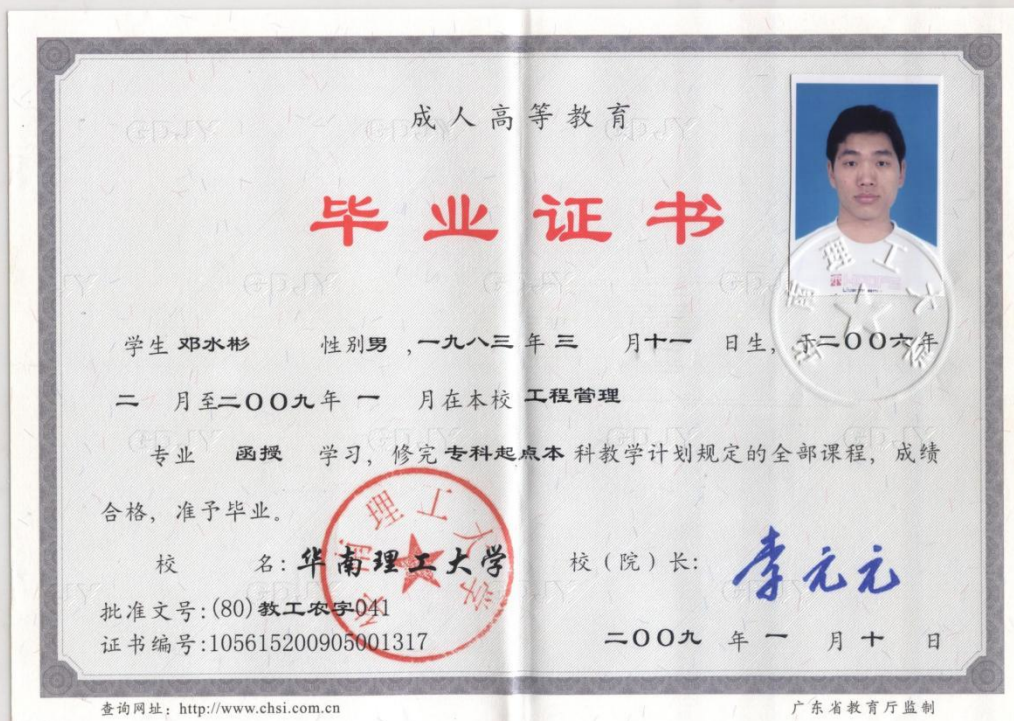 成人高等教育
毕业证书
学生 邓水彬 性别男 ,一九八三年三 月十一 日生, 于二〇〇六年
二 月至二〇〇九年 一 月在本校 工程管理
专业 函授 学习, 修完 专科起点本 科教学计划规定的全部课程, 成绩
合格, 准予毕业。
校 名: 华南理工大学
校(院)长: 李元元
批准文号:(80)教工农字041
证书编号:105615200905001317
二〇〇九 年 一 月 十 日
查询网址: http://www.chsi.com.cn
广东省教育厅监制
华南理工大学
华南理工大学
GDJY